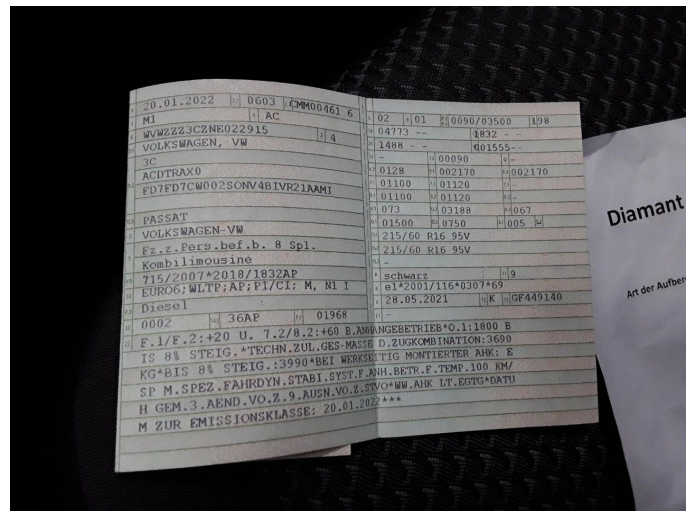 20.01.2022 0603 CMM00461 6
M1 AC
WVWZZZ3CZNE022915 4
VOLKSWAGEN, VW
3C
ACDTRAX0
FD7FD7CW002SONV4BIVR21AAMI
PASSAT
VOLKSWAGEN-VW
Fz.z.Pers.bef.b. 8 Spl.
Kombilimousine
715/2007*2018/1832AP
EURO6; WLTP;AP;PI/CI; M, N1 I
Diesel
0002 36AP 01968
02 01 0090/03500 198
04773 -- 1832 --
1488 -- 001555--
- 00090 -
0128 002170 002170
01100 01120 -
01100 01120 -
073 03188 067
01500 0750 005
215/60 R16 95V
215/60 R16 95V
-
schwarz 9
e1*2001/116*0307*69
28.05.2021 K GF449140
-
F.1/F.2:+20 U. 7.2/8.2:+60 B.ANHANGEBETRIEB*O.1:1800 B
IS 8% STEIG.*TECHN.ZUL.GES-MASSE D.ZUGKOMBINATION:3690
KG*BIS 8% STEIG.:3990*BEI WERKSEITIG MONTIERTER AHK: E
SP M.SPEZ.FAHRDYN.STABI.SYST.F.ANH.BETR.F.TEMP.100 KM/
H GEM.3.AEND.VO.Z.9.AUSN.VO.Z.STVO*WW.AHK LT.EGTG*DATU
M ZUR EMISSIONSKLASSE: 20.01.2022***
Diamant
Art der Aufber